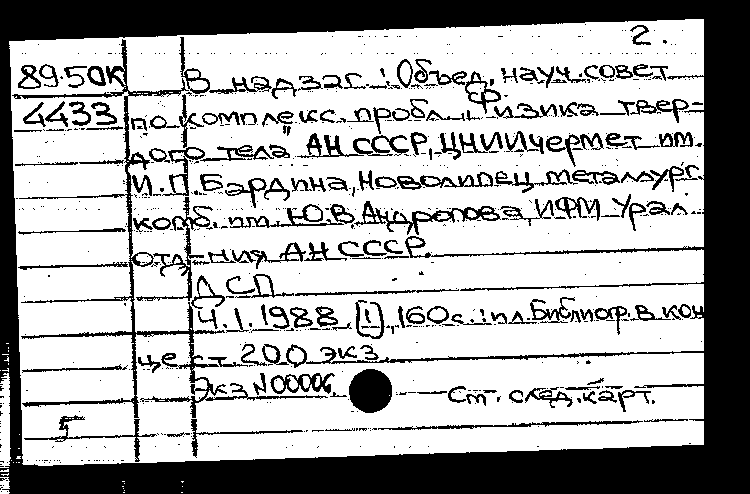 2.
89-50К В надзаг.: Объед. науч. совет
4433 по комплекс. пробл. „Физика твер-
дого тела" АН СССР, ЦНИИчермет им.
И.П. Бардина, Новолипец. металлург.
комб. им. Ю.В. Андропова, ИФМ Урал.
отд-ния АН СССР.
ДСП
Ч.1. 1988 [!], 160 с.: ил. Библиогр. в кон
це ст. 200 экз.
Экз N00006. См. след. карт.
5